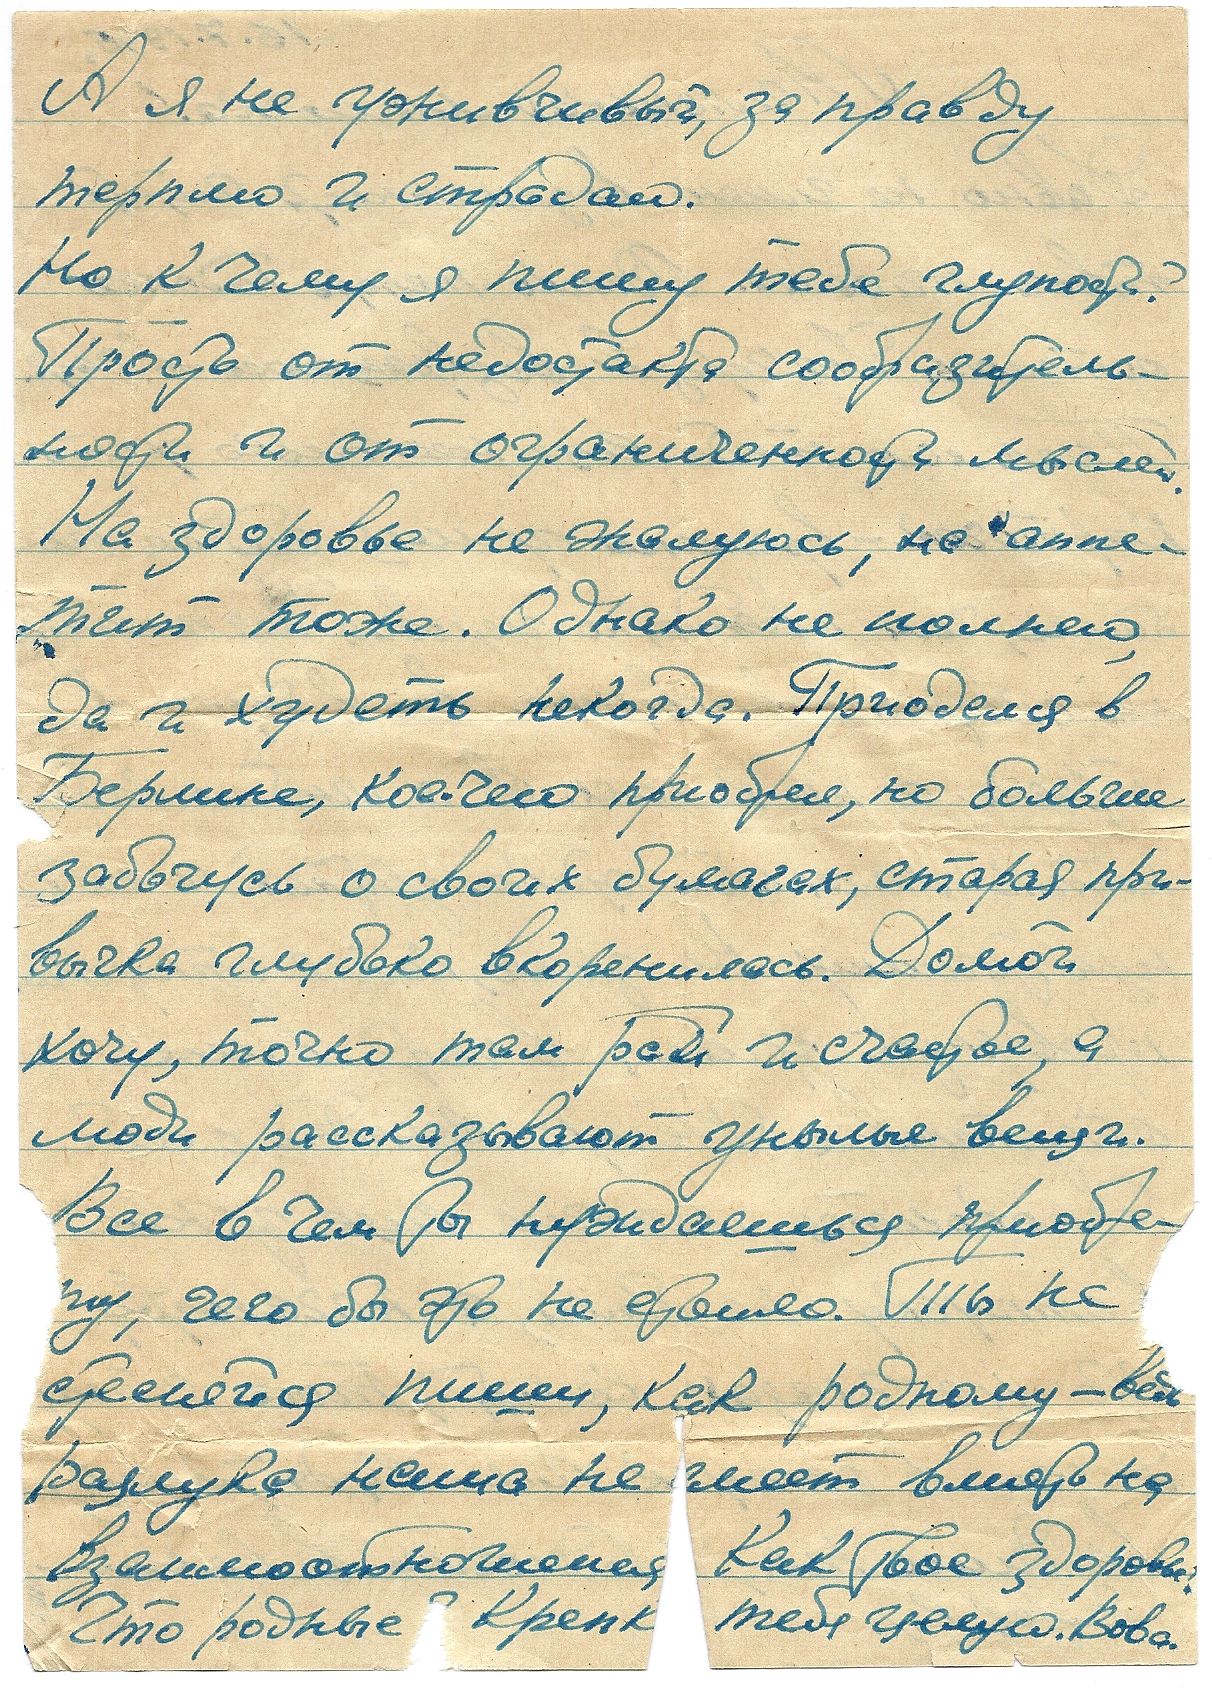 А я не уживчивый, за правду
терплю и страдаю.
Но к чему я пишу тебе глупости?
Прость от недостатка сообразитель-
ности и от ограниченности мыслей.
На здоровье не жалуюсь, на аппе-
тит тоже. Однако не полнею,
да и худеть некогда. Приоделся в
Берлине, кое-чего приобрел, но больше
забочусь о своих бумагах, старая при-
вычка глубоко вкоренилась. Домой
хочу, точно там рай и счастье, а
люди рассказывают унылые вещи.
Все в чем Ты нуждаешься приобре-
ту, чего бы это не стоило. Ты не
стесняйся пиши, как родному – ведь
разлука наша не имеет влиять на
взаимоотношения Как Твое здоровье?
Что родные? Крепк тебя целую. Вова.